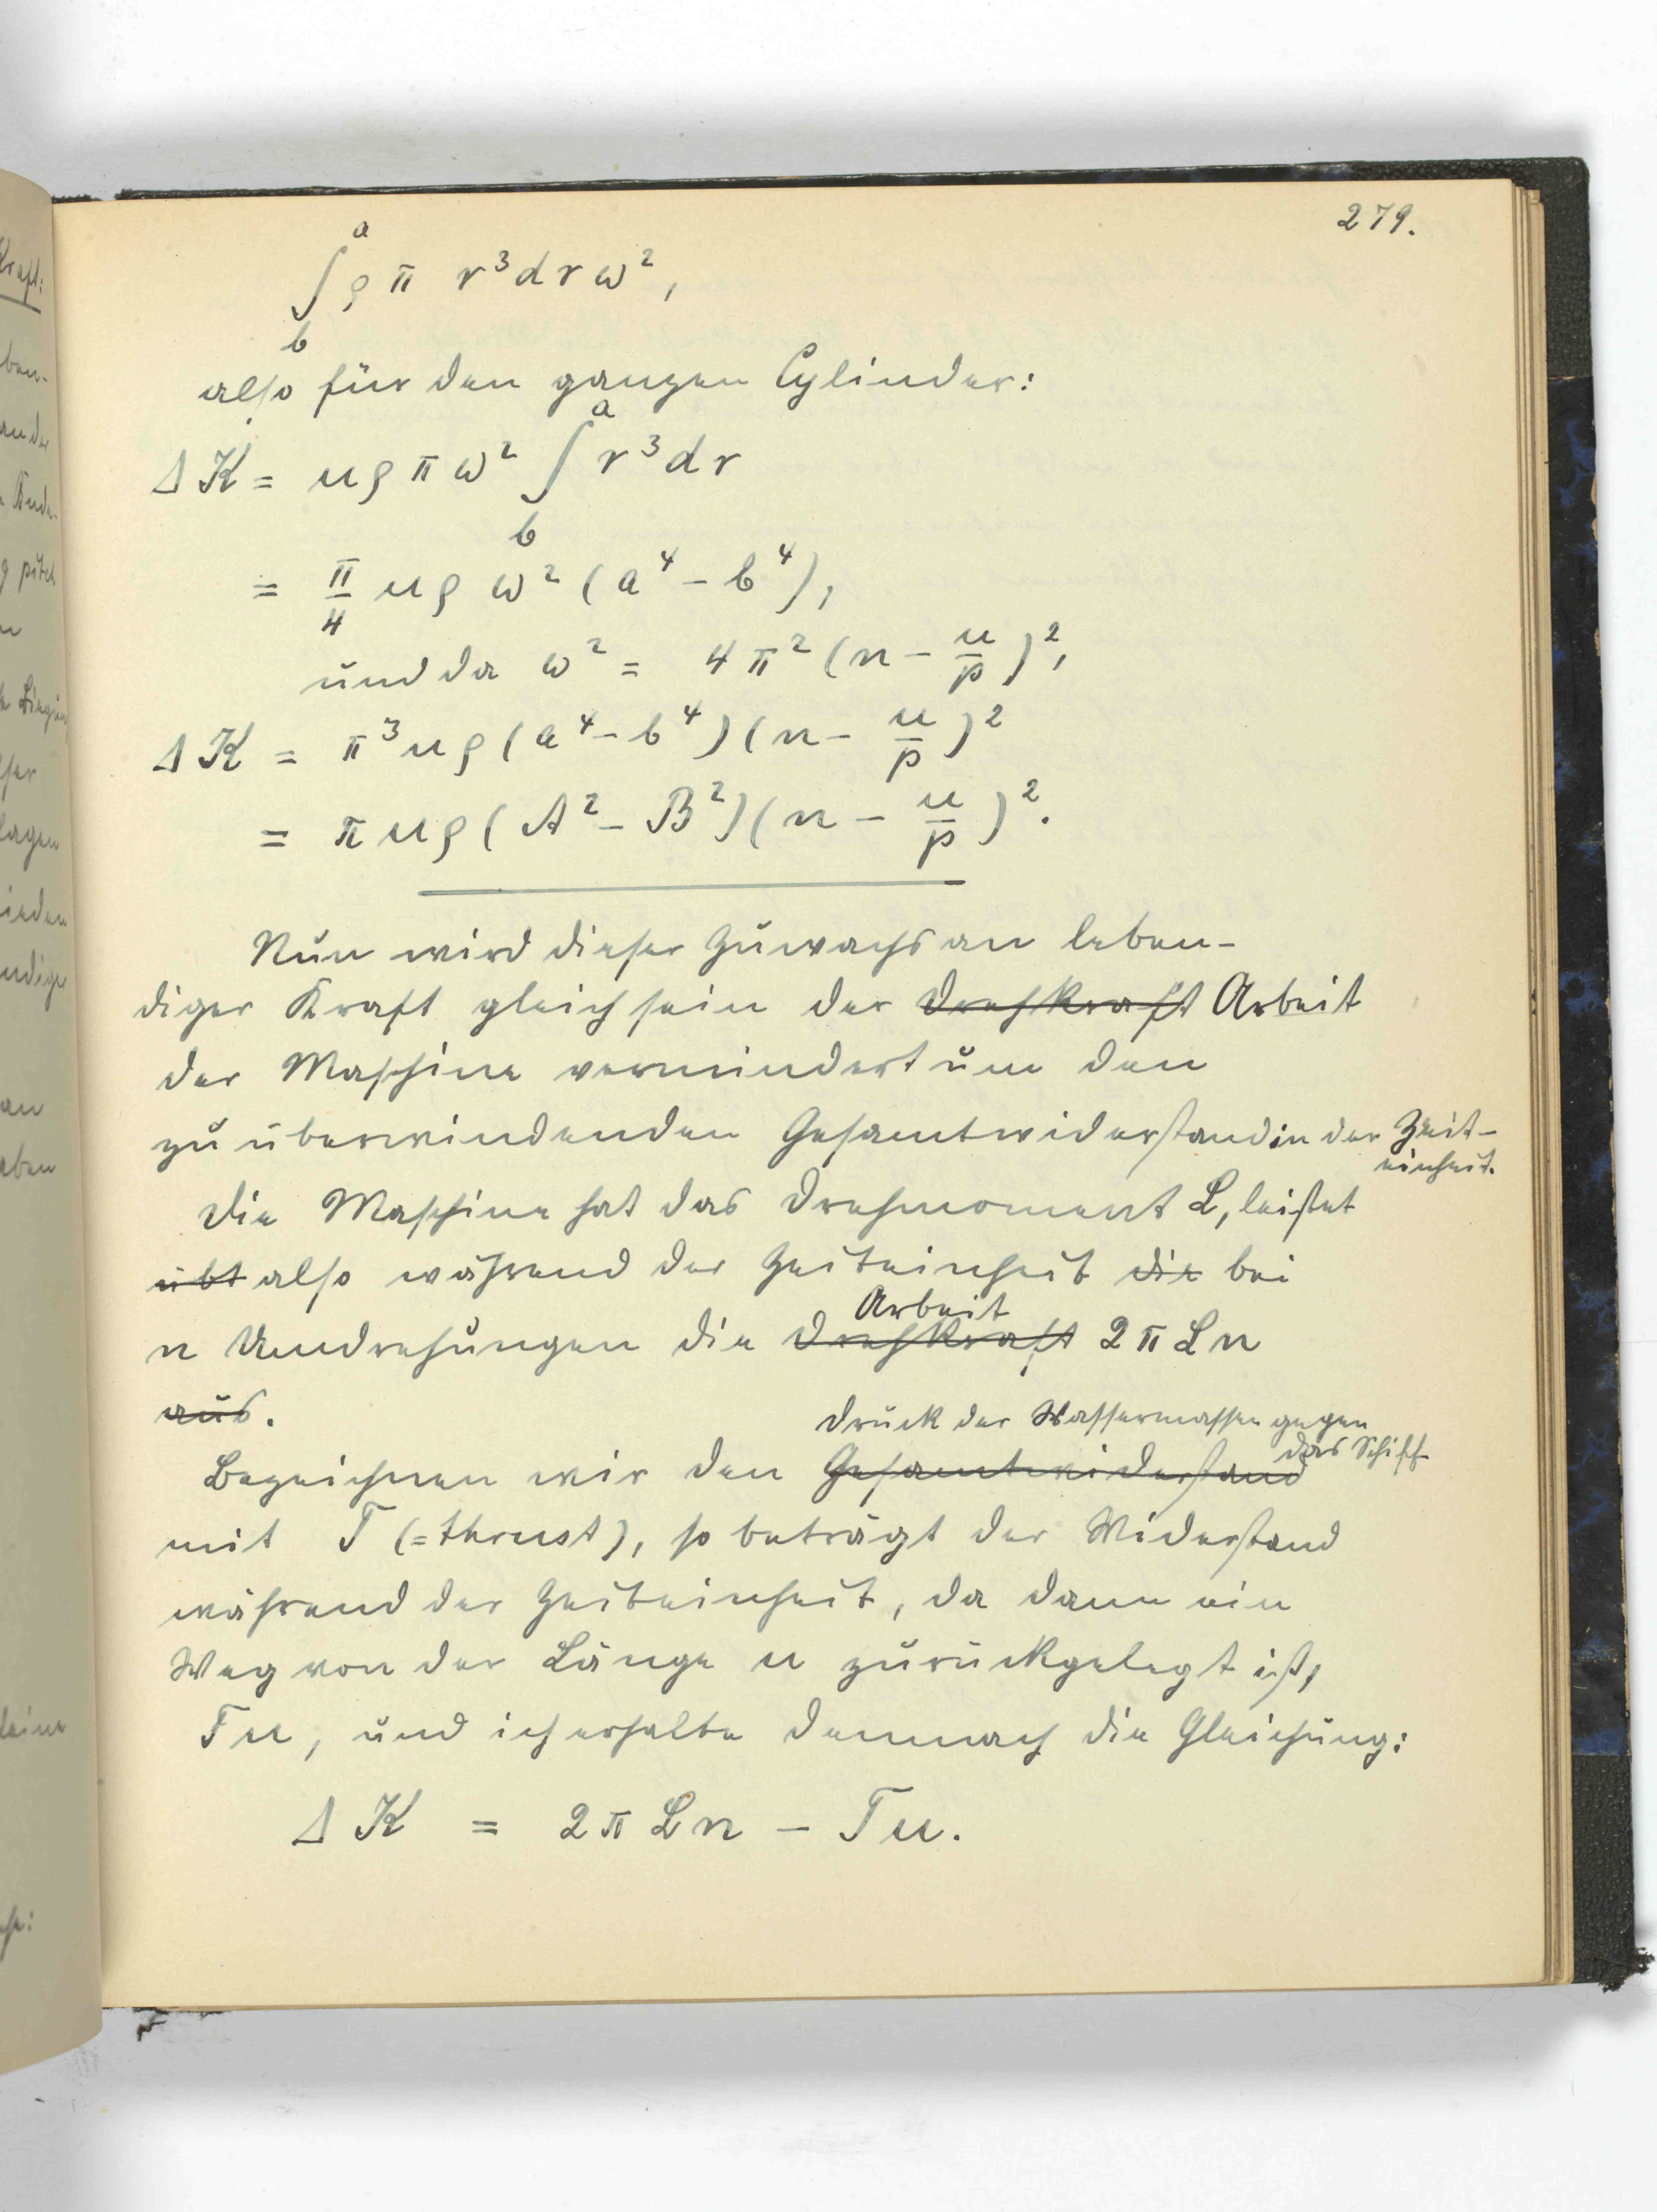 279.
∫_b^a ρ π r³ dr ω²,
also für den ganzen Cylinder:
Δ K = u ρ π ω² ∫_b^a r³ dr
= π/4 u ρ ω² (a⁴ - b⁴),
und da ω² = 4 π² (n - u/p)²,
Δ K = π³ u ρ (a⁴ - b⁴) (n - u/p)²
= π u ρ (A² - B²) (n - u/p)².
Nun wird dieser Zuwachs an leben-
diger Kraft gleich sein der Drehkraft Arbeit
der Maschine vermindert um den
zu überwindenden Gesamtwiderstand in der Zeit-
einheit.
Die Maschine hat das Drehmoment L, leistet
übt also während der Zeiteinheit die bei
Arbeit
n Umdrehungen die Drehkraft 2 π L n
aus.
Druck der Wassermassen gegen
das Schiff
Bezeichnen wir den Gesamtwiderstand
mit T (= thrust), so beträgt der Widerstand
während der Zeiteinheit, da dann ein
Weg von der Länge u zurückgelegt ist,
T u, und ich erhalte demnach die Gleichung:
Δ K = 2 π L n - T u.